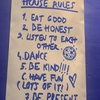 HOUSE RULES
1. EAT GOOD
2. BE HONEST
3. LISTEN TO EACH
OTHER
4. DANCE
5. BE KIND!!!
6. HAVE FUN
(LOTS OF IT)
7. BE PRESENT